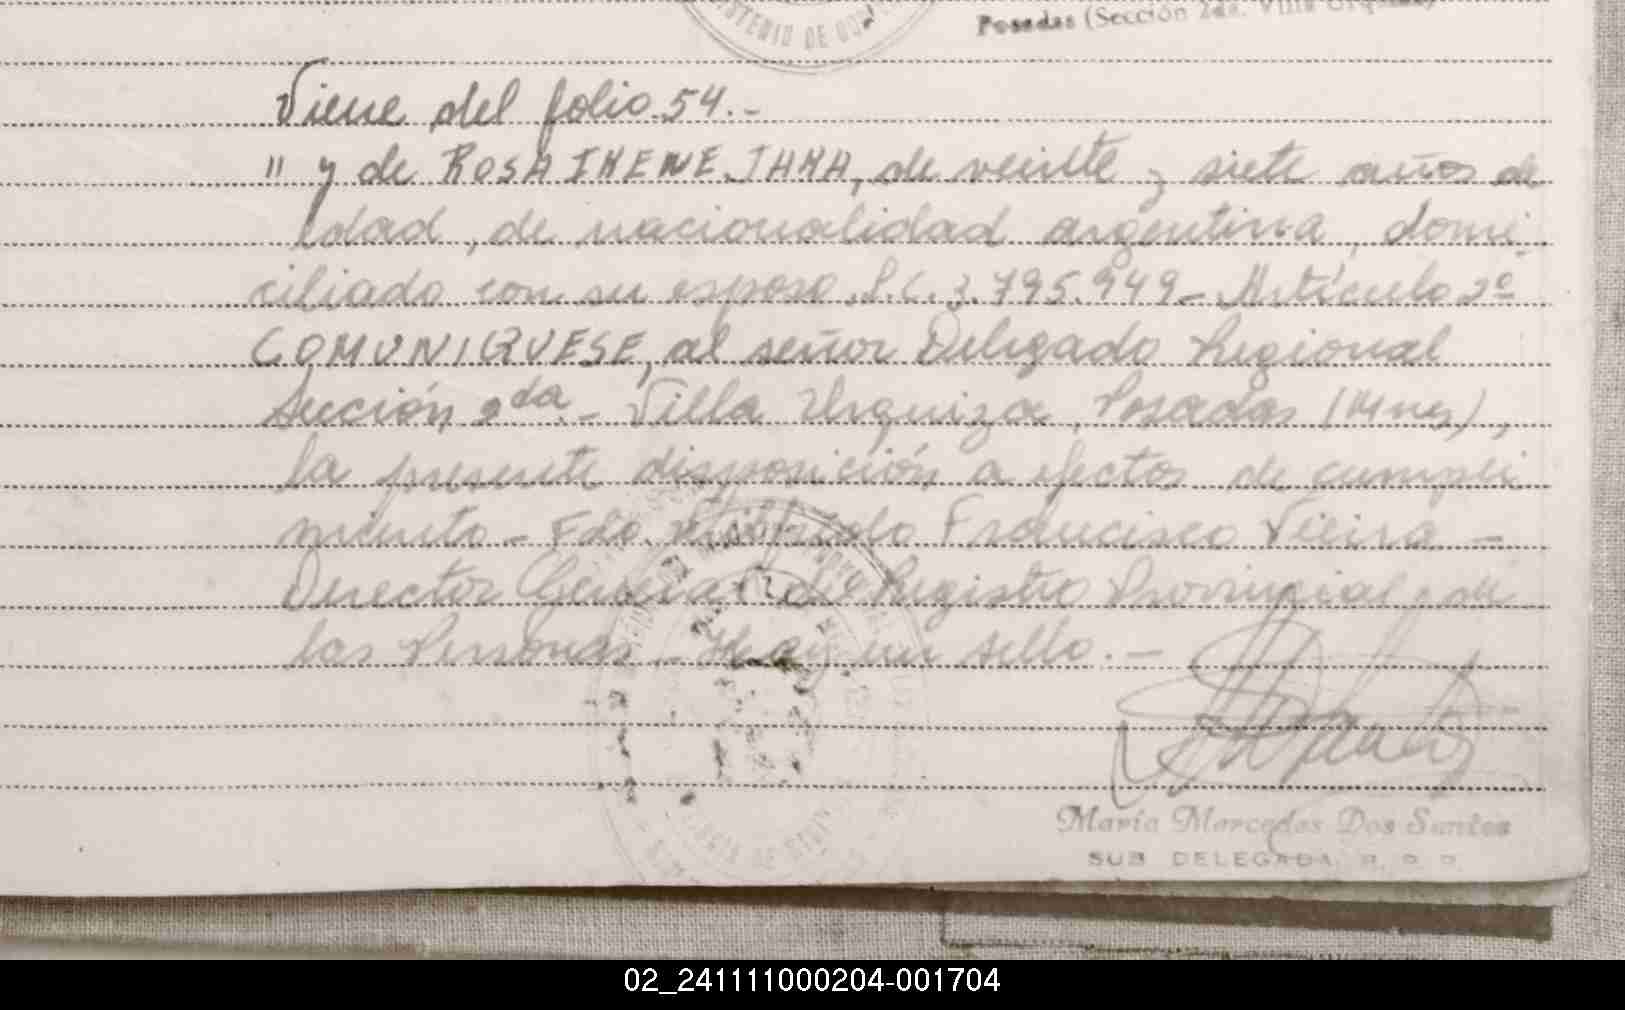 Posadas (Sección 2da. Villa Urquiza)
Viene del folio 54.-
" y de ROSA IRENE JAHA, de veinte y siete años de
edad, de nacionalidad argentina, domi-
ciliado con su esposo, L.C. 3.795.949 - Artículo 2º
COMUNIQUESE, al señor Delegado Regional
Sección 2da. - Villa Urquiza, Posadas (Mnes),
la presente disposición a efectos de cumpli
miento - Fdo. Francisco Vieira -
Director General del Registro Provincial de
las Personas - Hay un sello. -
María Mercedes Dos Santos
SUB DELEGADA R. P. P.
02_241111000204-001704